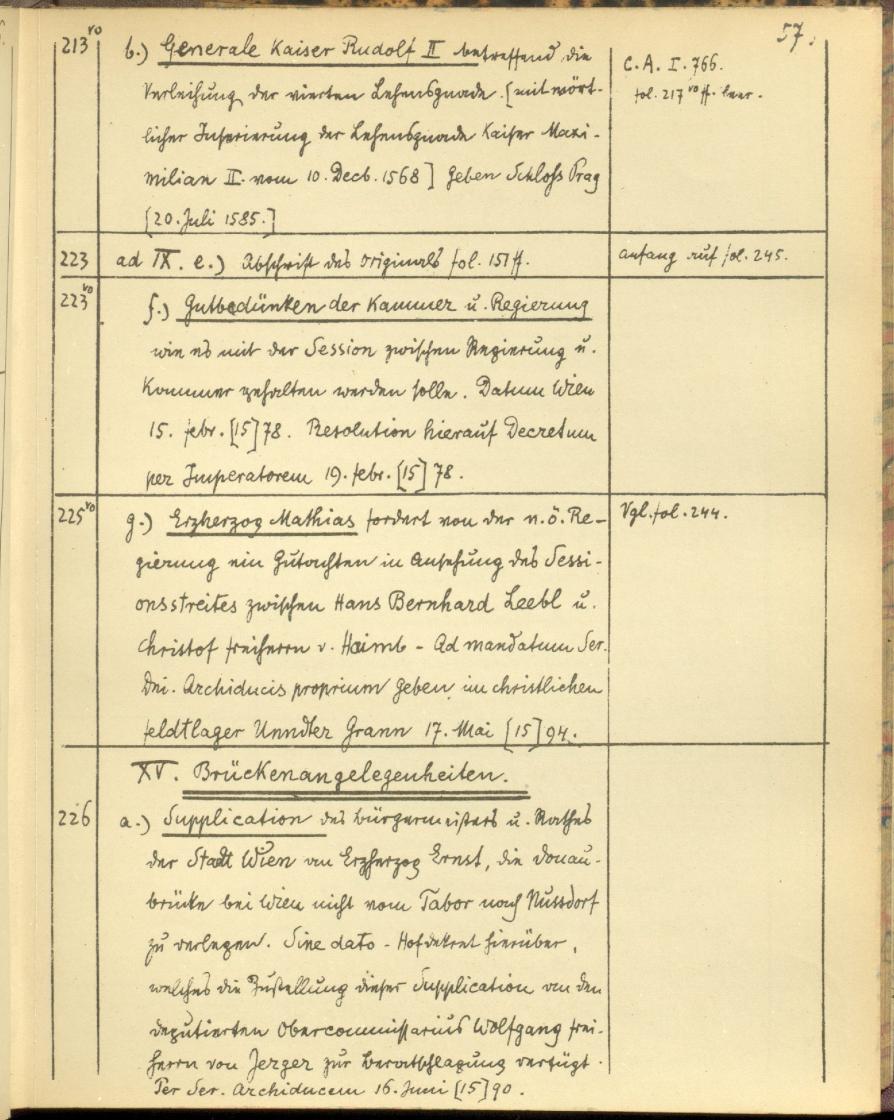 57.
213 vo b.) Generale Kaiser Rudolf II betreffend die
C. A. I. 766.
Verleihung der vierten Lehensgnade. [mit wört-
fol. 217 vo ff. leer.
licher Inserierung der Lehensgnade Kaiser Maxi-
milian II. vom 10. Decb. 1568] Geben Schloß Prag
[20. Juli 1585.]
223 ad IX. e.) Abschrift des Originals fol. 151 ff.
Anfang auf fol. 245.
223 vo f.) Gutbedünken der Kammer u. Regierung
wie es mit der Session zwischen Regierung u.
Kammer gehalten werden solle. Datum Wien
15. Febr. [15]78. Resolution hierauf Decretum
per Imperatorem 19. Febr. [15]78.
225 vo g.) Erzherzog Mathias fordert von der n.ö. Re-
Vgl. fol. 244.
gierung ein Gutachten in Ansehung des Sessi-
onsstreites zwischen Hans Bernhard Leebl u.
Christof Freiherrn v. Haimb - Ad mandatum Ser.
Dni. Archiducis proprium Geben im christlichen
Feldtlager Unndter Grann 17. Mai [15]94.
XV. Brückenangelegenheiten.
226 a.) Supplication des Bürgermeisters u. Rathes
der Stadt Wien an Erzherzog Ernst, die Donau-
brücke bei Wien nicht vom Tabor nach Nussdorf
zu verlegen. Sine dato - Hofdekret hierüber,
welches die Zustellung dieser Supplication an den
deputierten Obercommissarius Wolfgang Frei-
herrn von Jerger zur Beratschlagung verfügt.
Per Ser. Archiducem 16. Juni [15]90.